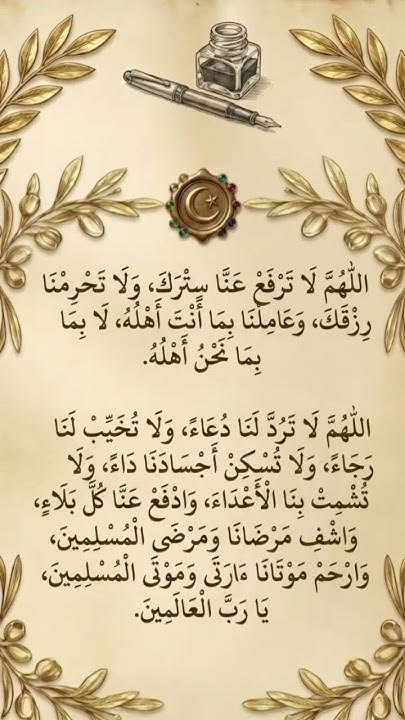 اللّٰهُمَّ لَا تَرْفَعْ عَنَّا سِتْرَكَ، وَلَا تَحْرِمْنَا
رِزْقَكَ، وَعَامِلْنَا بِمَا أَنْتَ أَهْلُهُ، لَا بِمَا
بِمَا نَحْنُ أَهْلُهُ.
اللّٰهُمَّ لَا تَرُدَّ لَنَا دُعَاءً، وَلَا تُخَيِّبْ لَنَا
رَجَاءً، وَلَا تُسْكِنْ أَجْسَادَنَا دَاءً، وَلَا
تُشْمِتْ بِنَا الْأَعْدَاءَ، وَادْفَعْ عَنَّا كُلَّ بَلَاءٍ،
وَاشْفِ مَرْضَانَا وَمَرْضَى الْمُسْلِمِينَ،
وَارْحَمْ مَوْتَانَا ءَارَتَى وَمَوْتَى الْمُسْلِمِينَ،
يَا رَبَّ الْعَالَمِينَ.